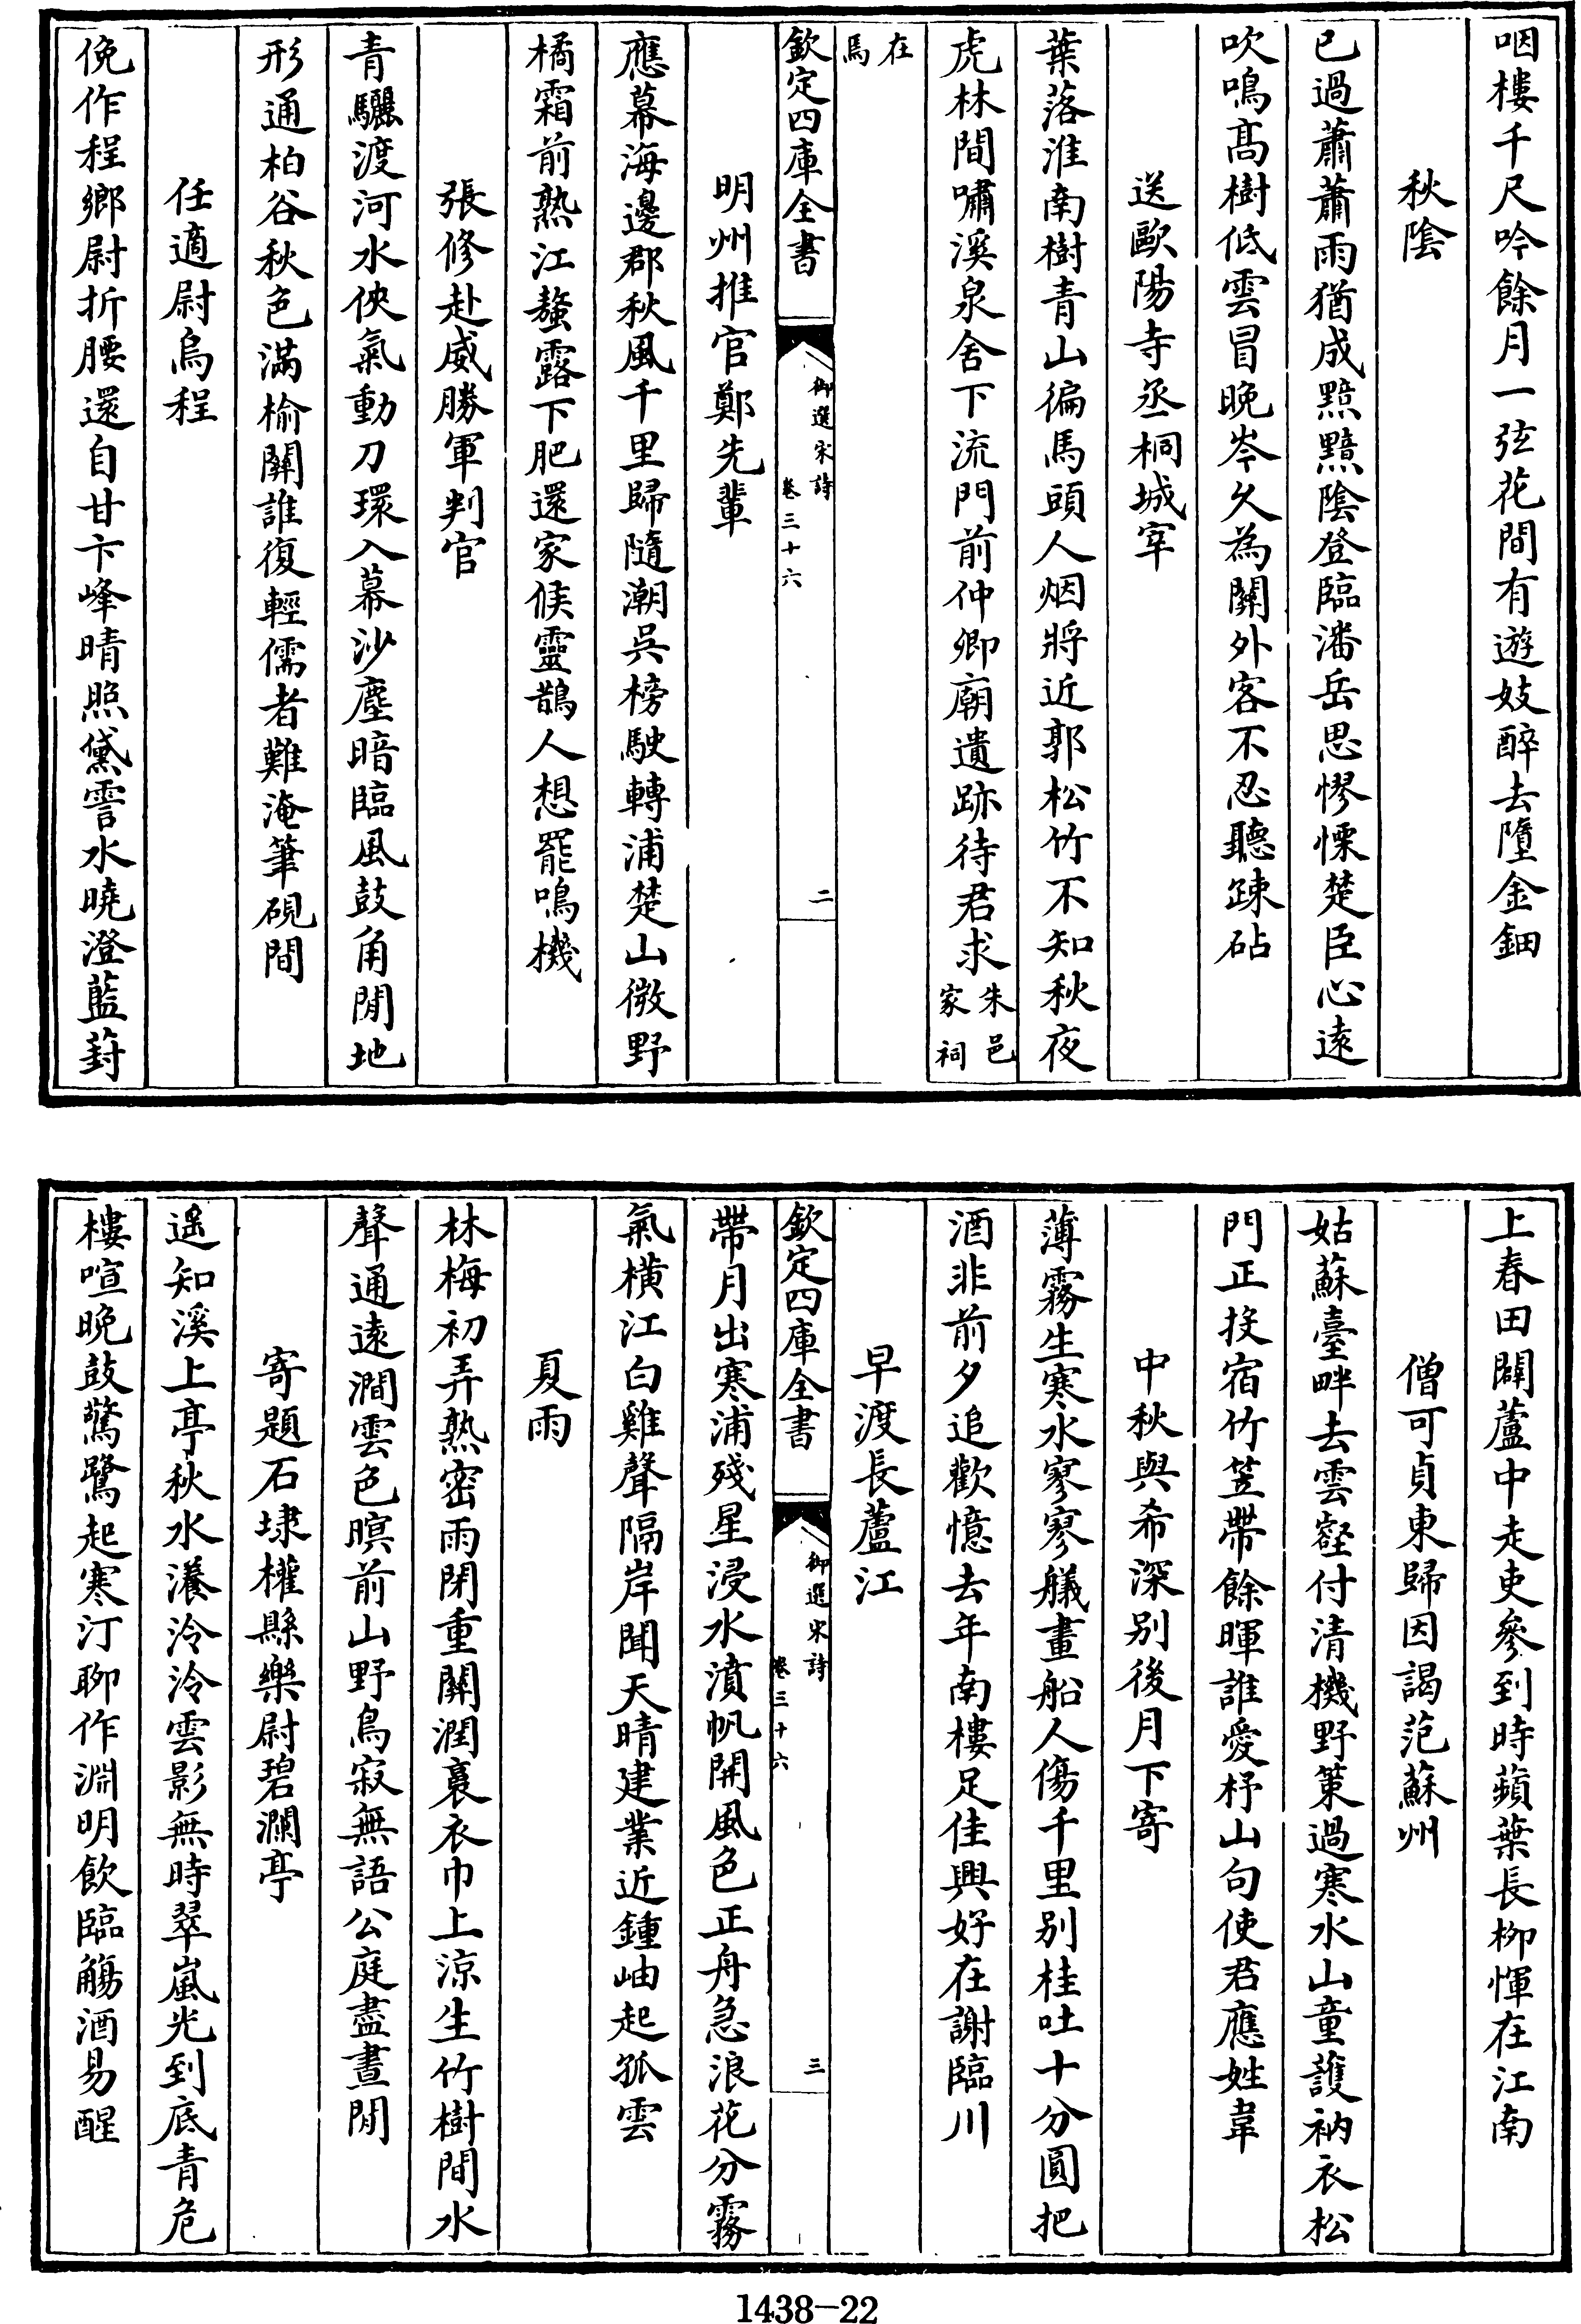 咽樓千尺吟餘月一弦花間有遊妓醉去墮金鈿
秋陰
已過蕭蕭雨猶成黯黯陰登臨潘岳思憀慄楚臣心遠
吹鳴髙樹低雲冒晚岑久為關外客不忍聽疎砧
送歐陽寺丞桐城宰
葉落淮南樹青山徧馬頭人烟將近郭松竹不知秋夜
虎林間嘯溪泉舍下流門前仲卿廟遺跡待君求朱邑家祠
在焉
欽定四庫全書
御選宋詩
卷三十六
二
明州推官鄭先輩
應幕海邊郡秋風千里歸隨潮吳榜駛轉浦楚山微野
橘霜前熟江螯露下肥還家候靈鵲人想罷鳴機
張修赴威勝軍判官
青驪渡河水俠氣動刀環入幕沙塵暗臨風鼓角閒地
形通柏谷秋色滿榆關誰復輕儒者難淹筆硯間
任適尉烏程
俛作程鄉尉折腰還自甘卞峰晴照黛霅水曉澄藍葑
上春田闢蘆中走吏參到時蘋葉長柳惲在江南
僧可貞東歸因謁范蘇州
姑蘇臺畔去雲壑付清機野策過寒水山童護衲衣松
門正投宿竹笠帶餘暉誰愛杼山句使君應姓韋
中秋與希深别後月下寄
薄霧生寒水寥寥艤畫船人傷千里别桂吐十分圓把
酒非前夕追歡憶去年南樓足佳興好在謝臨川
早渡長蘆江
欽定四庫全書
御選宋詩
卷三十六
三
帶月出寒浦殘星浸水濆帆開風色正舟急浪花分霧
氣横江白雞聲隔岸聞天晴建業近鍾岫起孤雲
夏雨
林梅初弄熟密雨閉重關潤裛衣巾上涼生竹樹間水
聲通遠澗雲色暝前山野鳥寂無語公庭盡晝閒
寄題石埭權縣樂尉碧瀾亭
遥知溪上亭秋水漾泠泠雲影無時翠嵐光到底青危
樓喧晚鼓驚鷺起寒汀聊作淵明飲臨觴酒易醒
1438—22